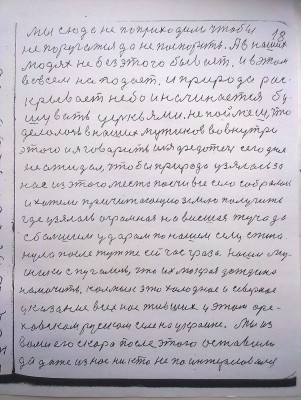 18
мы сюда не поприходим чтобы
не поругатся да не поспорить. А в наших
людях не без этого бывает, и в этом
вовсем нападает, и природа рас-
крывает небо и начинается бу-
шувать не поймеш, что
делалось в наших мутиков вовнутри
этого и я говорить сегодня
не ожидал, чтобы природа узялась за
нас из этого места почти все село собрали
и хотели причитающую землю получить
где узялась огромная на висшая туча да
с большим ударом по нашем селу, стук
нула после тут же сейчас гроза. Наши му
жики спугалис, что их мокрая дождина
намочить, как мы это холодное и северное
указание всех нас живших у этом оре-
ховском русском селе на украине. Мы из
вами его скоро после этого оставили
да даже из нас ни кто не поинтересовался